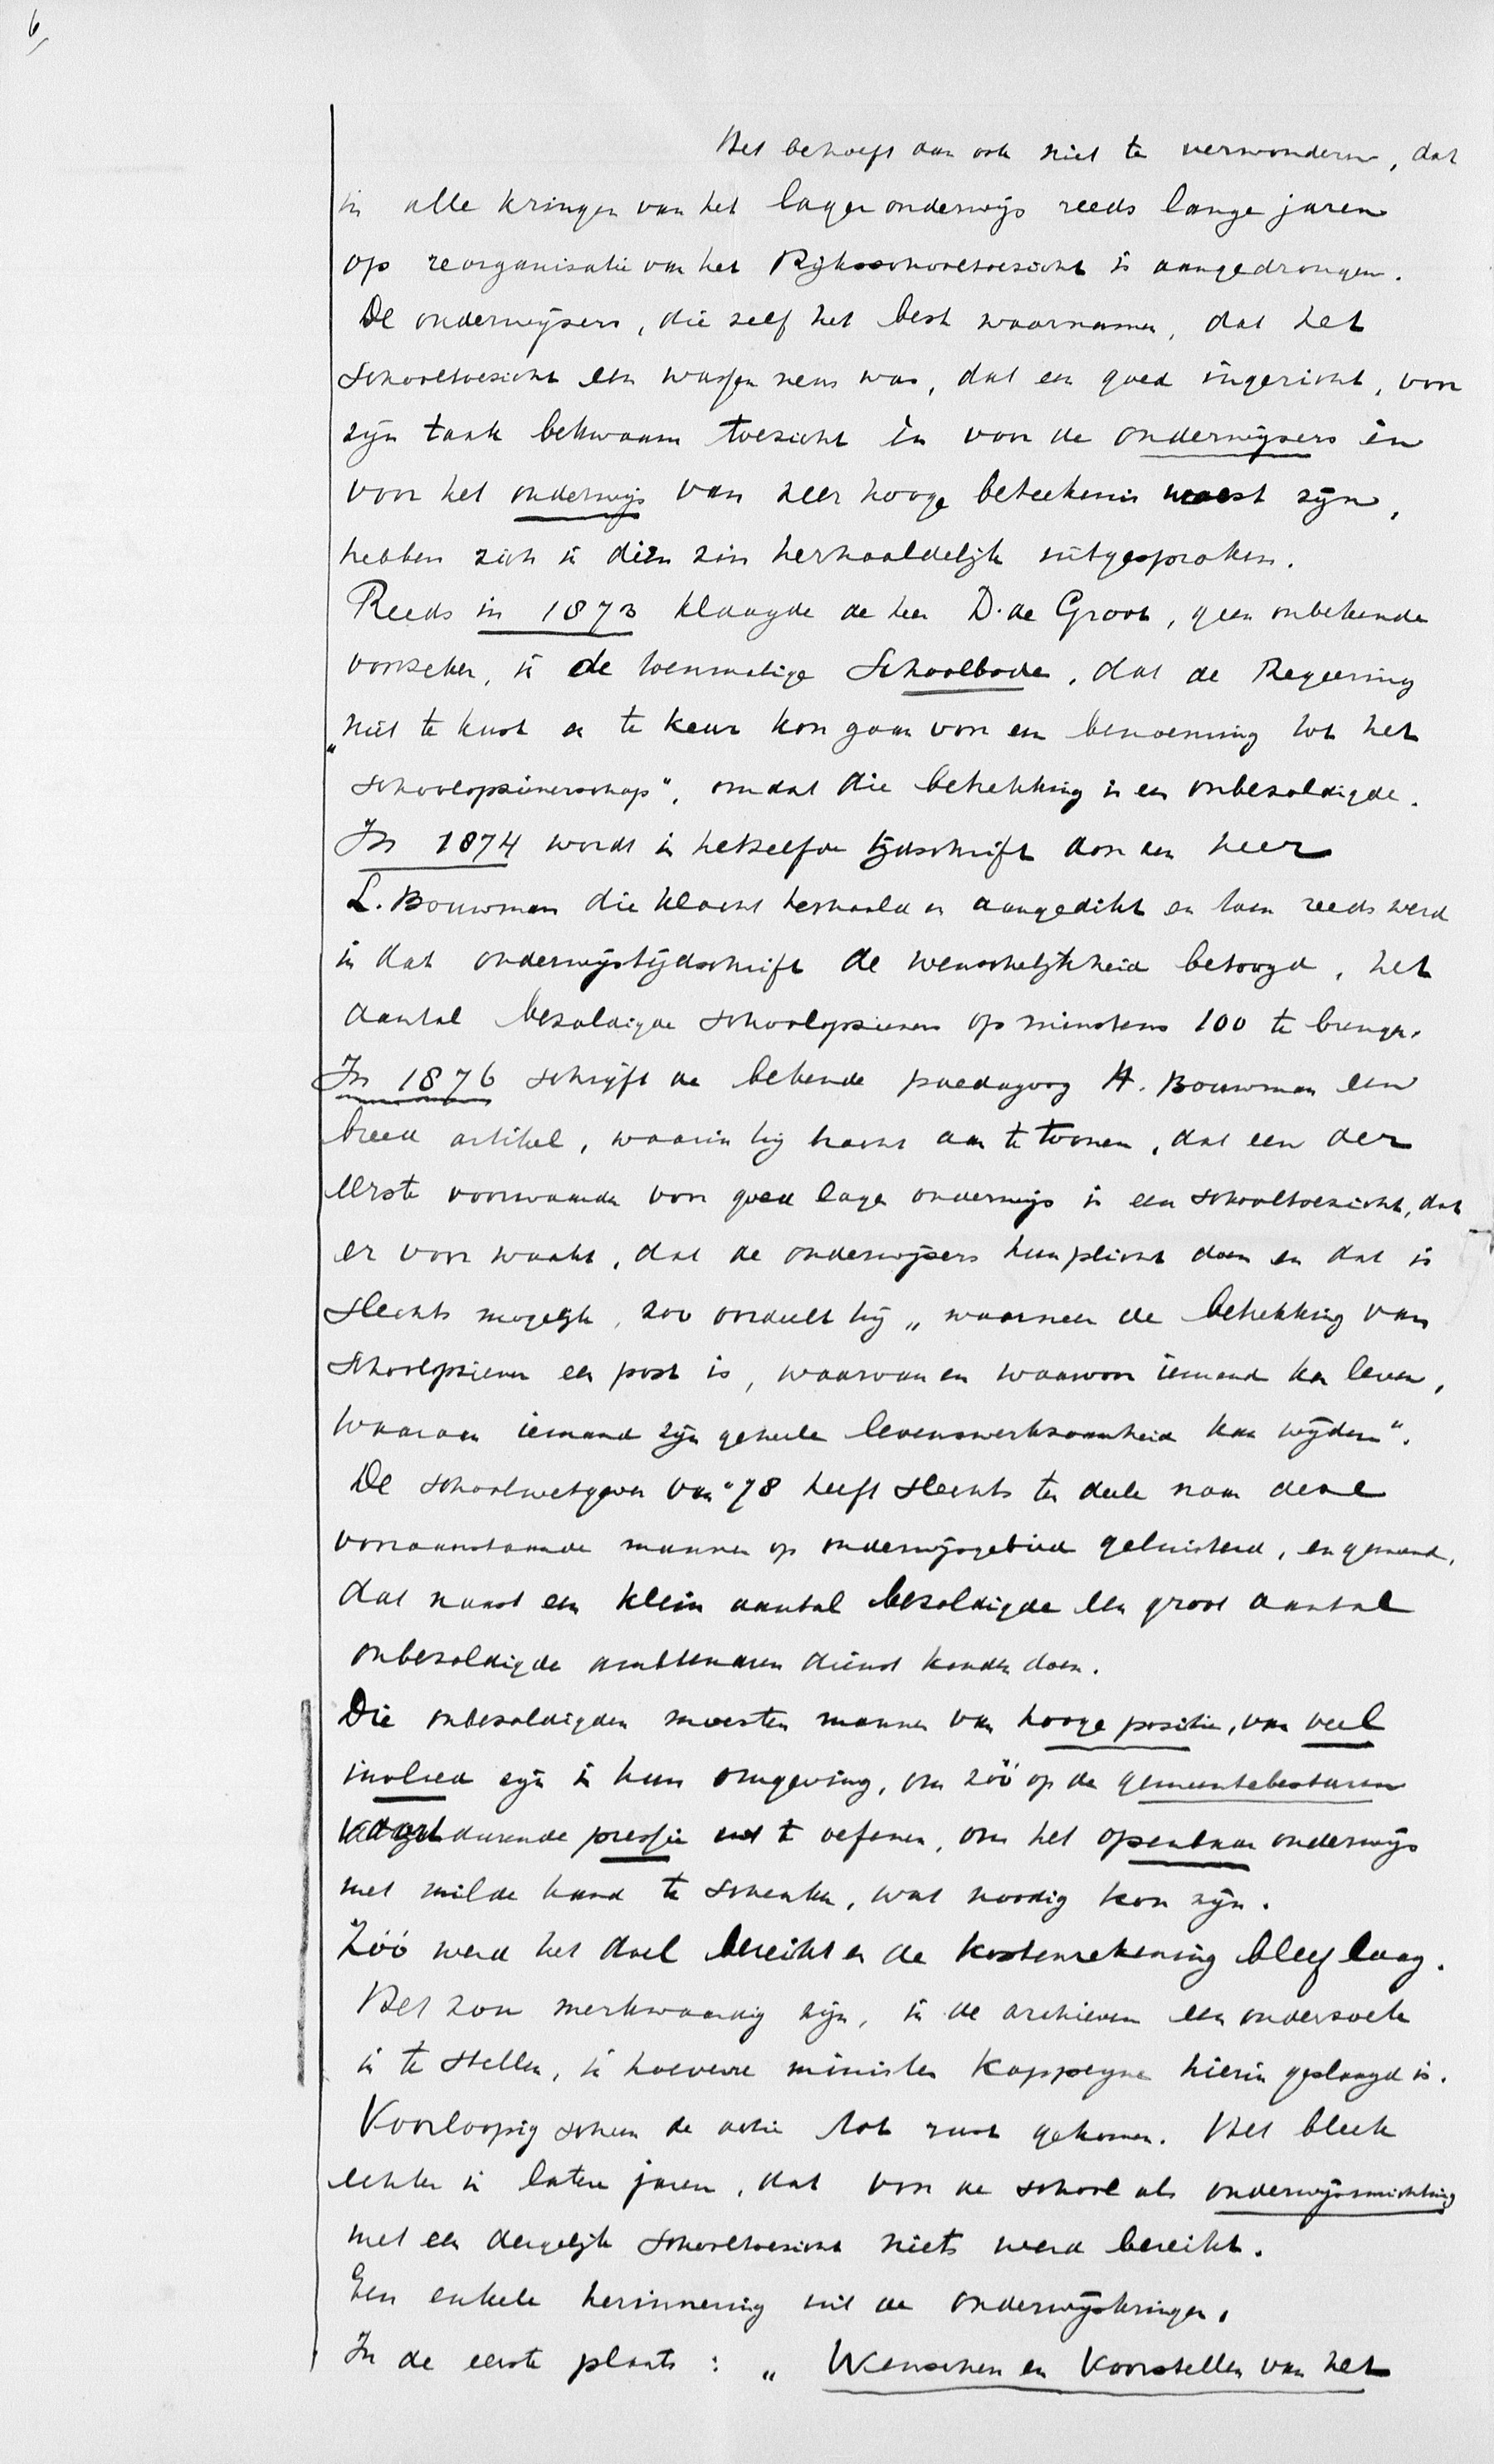 6,
Het behoeft dan ook niet te verwonderen, dat
in alle kringen van het lager onderwijs reeds lange jaren
op reorganisatie van het Rijksschooltoezicht is aangedrongen.
De onderwijzers, die zelf het best waarnamen, dat het
Schooltoezicht een wassen neus was, dat een goed ingericht, voor
zijn taak bekwaam toezicht èn voor de onderwijzers èn
voor het onderwijs van zeer hooge beteekenis moest zijn,
hebben zich in dien zin herhaaldelijk uitgesproken.
Reeds in 1873 klaagde de heer D. de Groot, geen onbekende
voorzeker, in de toenmalige Schoolbode, dat de Regeering
„niet te kust en te keur kon gaan voor een benoeming tot het
schoolopzienerschap", omdat die betrekking is een onbezoldigde.
In 1874 wordt in hetzelfde tijdschrift door den heer
L. Bouwman die klacht herhaald en aangedikt en toen reeds werd
in dat onderwijstijdschrift de wenschelijkheid betoogd, het
aantal bezoldigde schoolopzieners op minstens 100 te brengen.
In 1876 schrijft de bekende paedagoog H. Bouwman een
breed artikel, waarin hij tracht aan te toonen, dat een der
eerste voorwaarden voor goed lager onderwijs is een schooltoezicht, dat
er voor waakt, dat de onderwijzers hun plicht doen en dat is
slechts mogelijk, zoo oordeelt hij „waarneer de betrekking van
Schoolopziener een post is, waarvan en waarvoor iemand kan leven,
waaraan iemand zijn geheele levenswerkzaamheid kan wijden".
De schoolwetgever van '78 heeft slechts ten deele naar deze
vooraanstaande mannen op onderwijsgebied geluisterd, en gemeend,
dat naast een klein aantal bezoldigde een groot aantal
onbezoldigde ambtenaren dienst konden doen.
Die onbezoldigden moesten mannen van hooge positie, van veel
invloed zijn in hun omgeving, om zóó op de gemeentebesturen
voortdurende pressie uit te oefenen, om het openbaar onderwijs
met milde hand te schenken, wat noodig kon zijn.
Zóó werd het doel bereikt en de kostenrekening bleef laag.
Het zou merkwaardig zijn, in de archieven een onderzoek
in te stellen, in hoeverre minister Kappeyne hierin geslaagd is.
Voorloopig scheen de actie tot rust gekomen. Het bleek
echter in latere jaren, dat voor de school als onderwijsinrichting
met een dergelijk schooltoezicht niets werd bereikt.
Een enkele herinnering uit de onderwijskringen.
In de eerste plaats: „Wenschen en Voorstellen van het